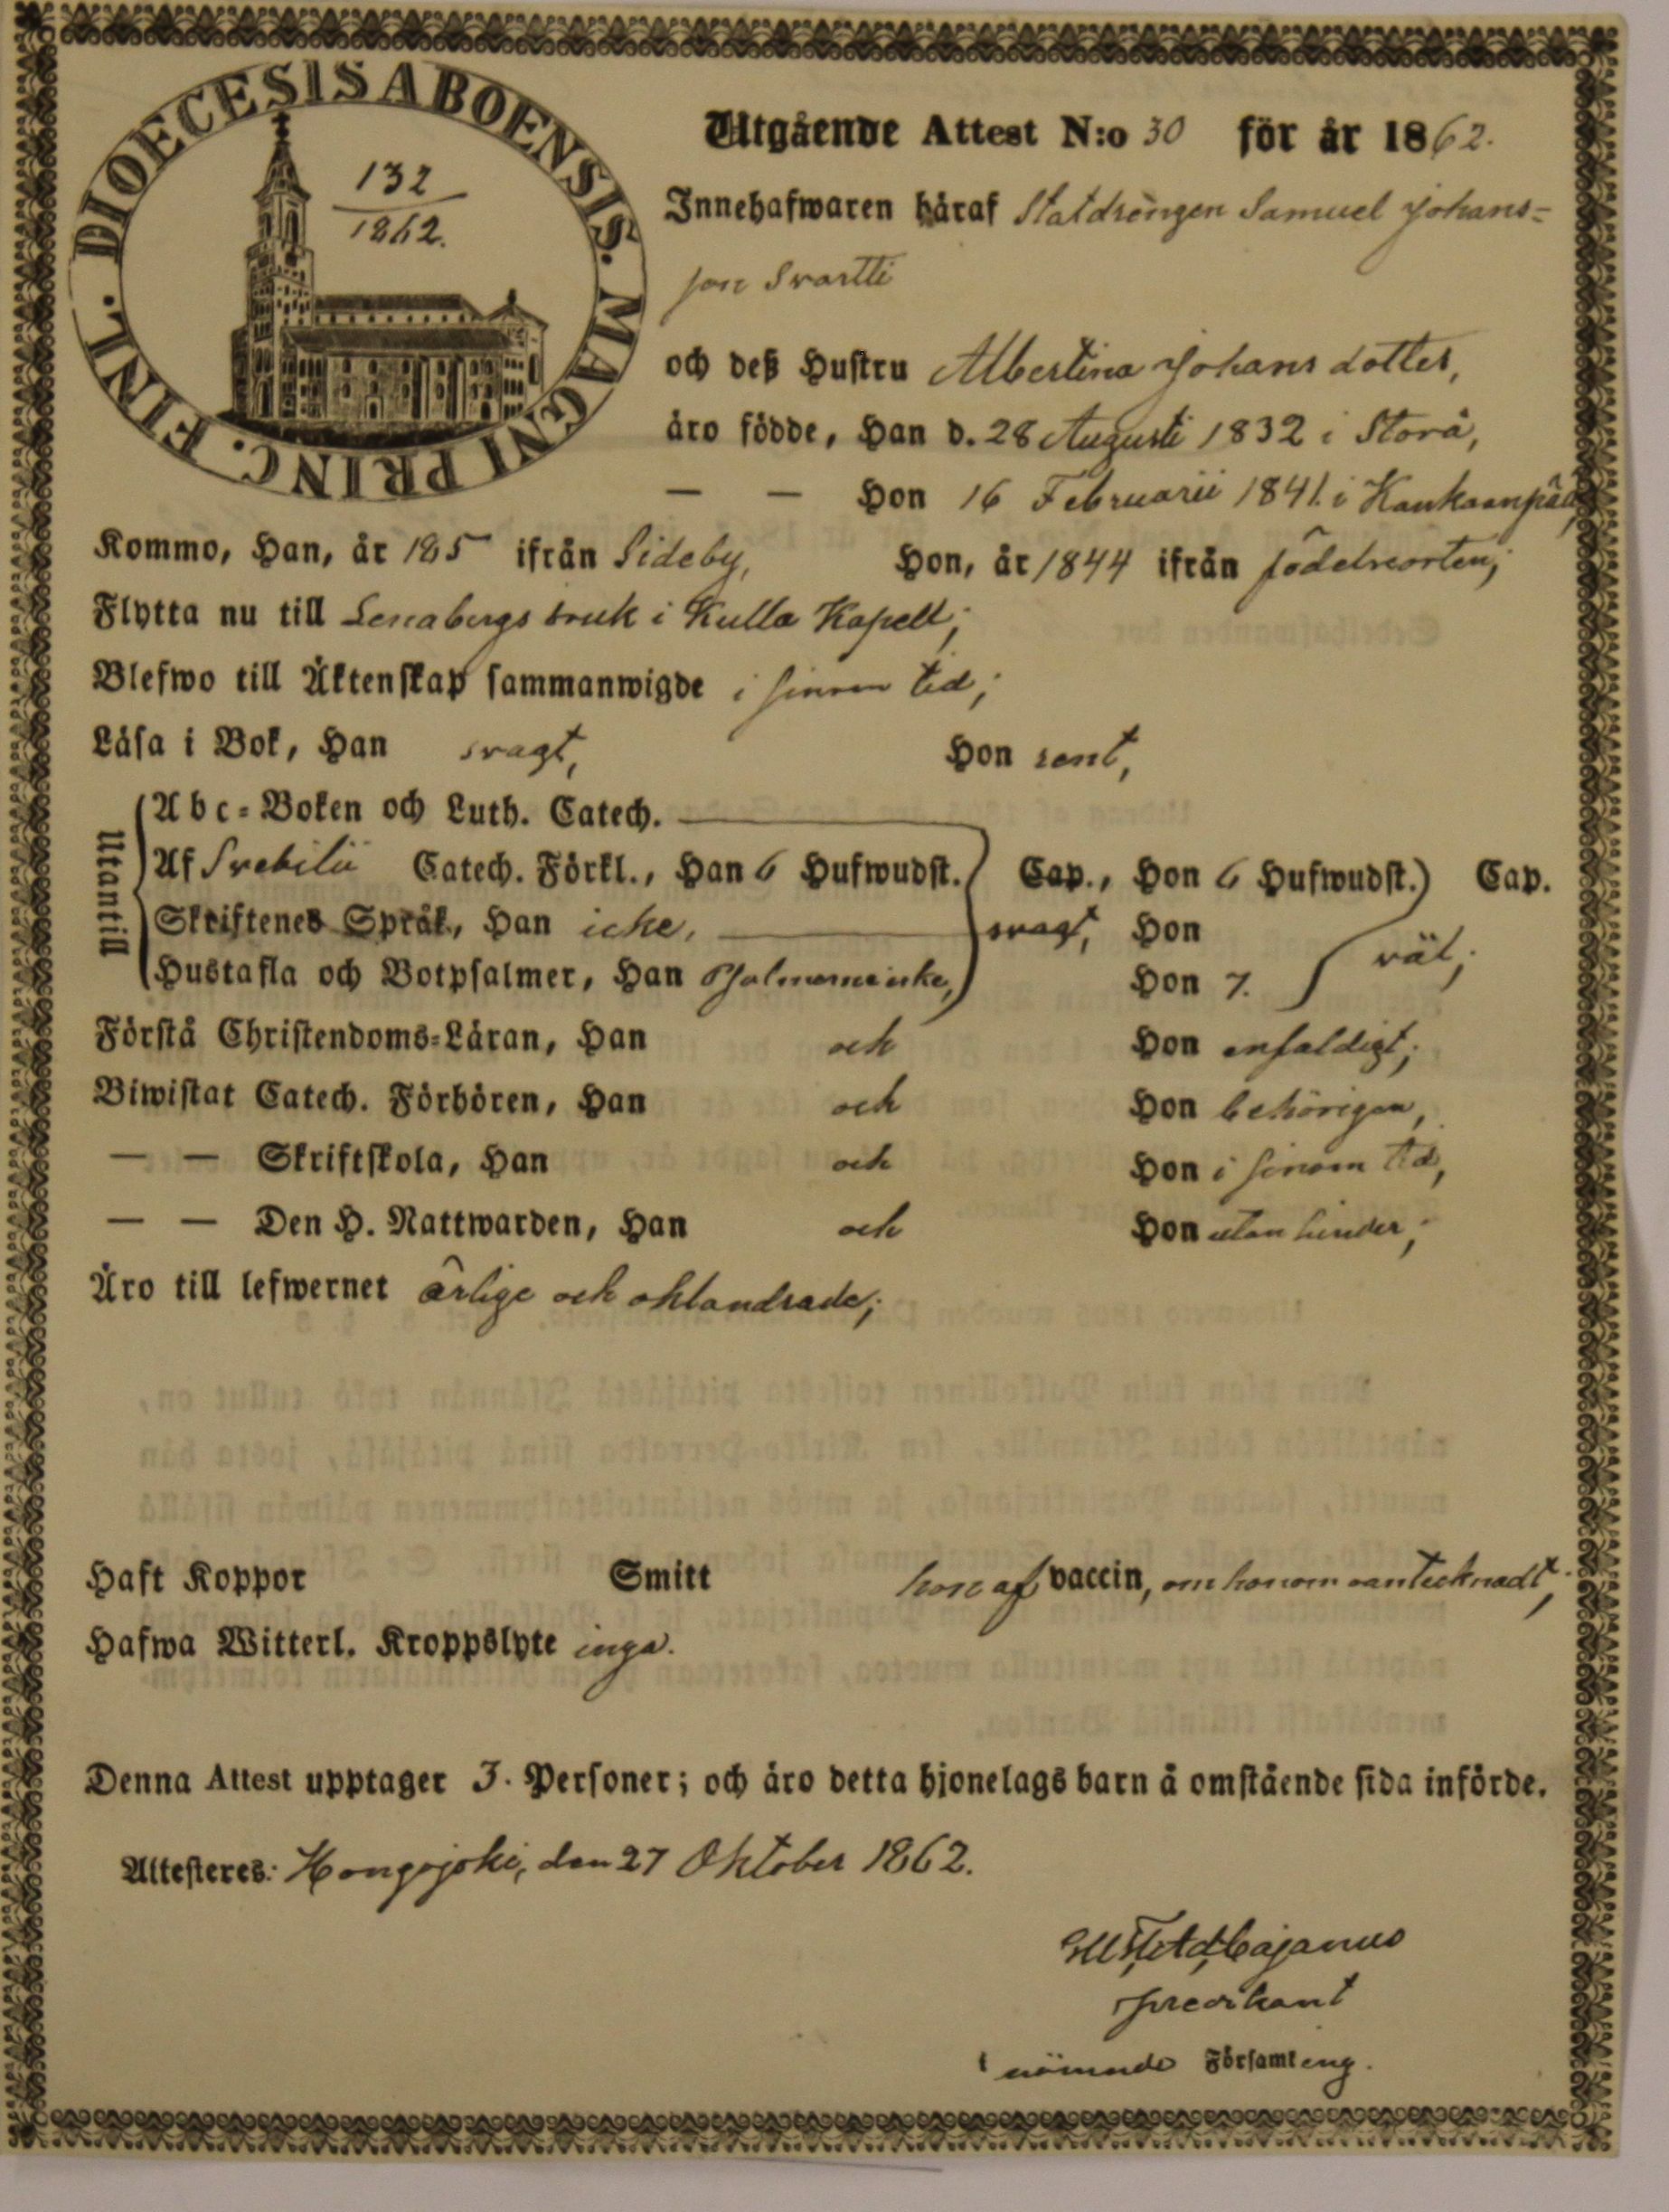 DIOECESIS ABOENSIS. MAGNI PRINC. FINL.
132
1862.
Utgående Attest N:o 30 för år 1862.
Innehafwaren häraf Statdrengen Samuel Johans=
son Svartti
och deß Hustru Albertina Johansdotter,
äro födde, Han d. 28 Augusti 1832 i Storå,
— — Hon 16 Februarii 1841 i Kankaanpää,
Kommo, Han, år 185 ifrån Sideby, Hon, år 1844 ifrån födelseorten;
Flytta nu till Lenabergs bruk i Kulla Kapell;
Blefwo till Äktenskap sammanwigde i sinom tid;
Läsa i Bok, Han svagt, Hon rent,
Utantill
Abc=Boken och Luth. Catech.
Af Svebilii Catech. Förkl., Han 6 Hufwudst. Cap., Hon 6 Hufwudst.) Cap.
Skriftenes Språk, Han icke, svagt, Hon väl;
Hustafla och Botpsalmer, Han Psalmerne icke, Hon 7.
Förstå Christendoms=Läran, Han och Hon enfaldigt;
Biwistat Catech. Förhören, Han och Hon behörigen,
— — Skriftskola, Han och Hon i sinom tid,
— — Den H. Nattwarden, Han och Hon utan hinder;
Äro till lefwernet ärlige och oklandrade;
Haft Koppor Smitt hon af vaccin, om honom oantecknadt;
Hafwa Witterl. Kroppslyte inga.
Denna Attest upptager 3. Personer; och äro detta hjonelags barn å omstående sida införde.
Attesteres: Hongojoki, den 27 Oktober 1862.
Cajanus
predikant
i nämnde Församling.